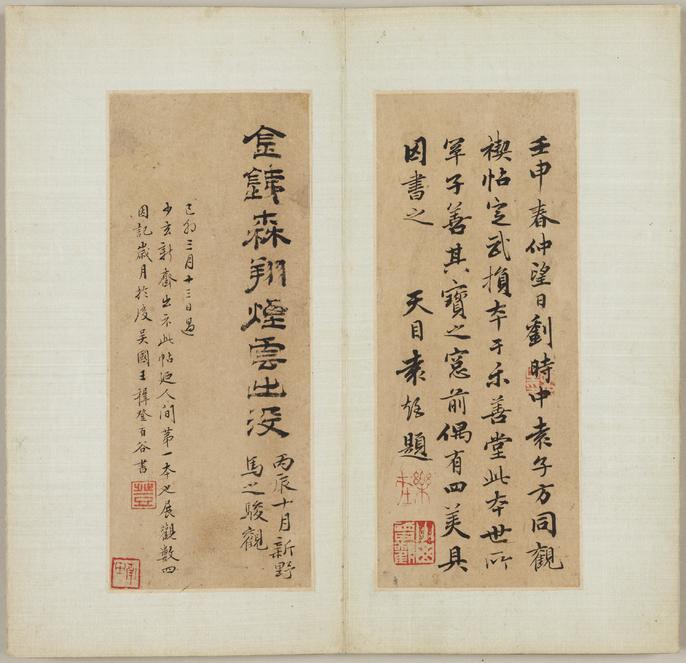 壬申春仲望日劉時中袁子方同觀
禊帖定武損本于樂善堂此本世所
罕子善其寶之窓前偶有四美具
因書之 天目袁題
金銕森翔煙雲出没
丙辰十月新野
馬之駿觀
己卯三月十三日過
少玄新齋出示此帖迺人間第一本也展觀數四
因記歲月於後吳國王穉登百谷書